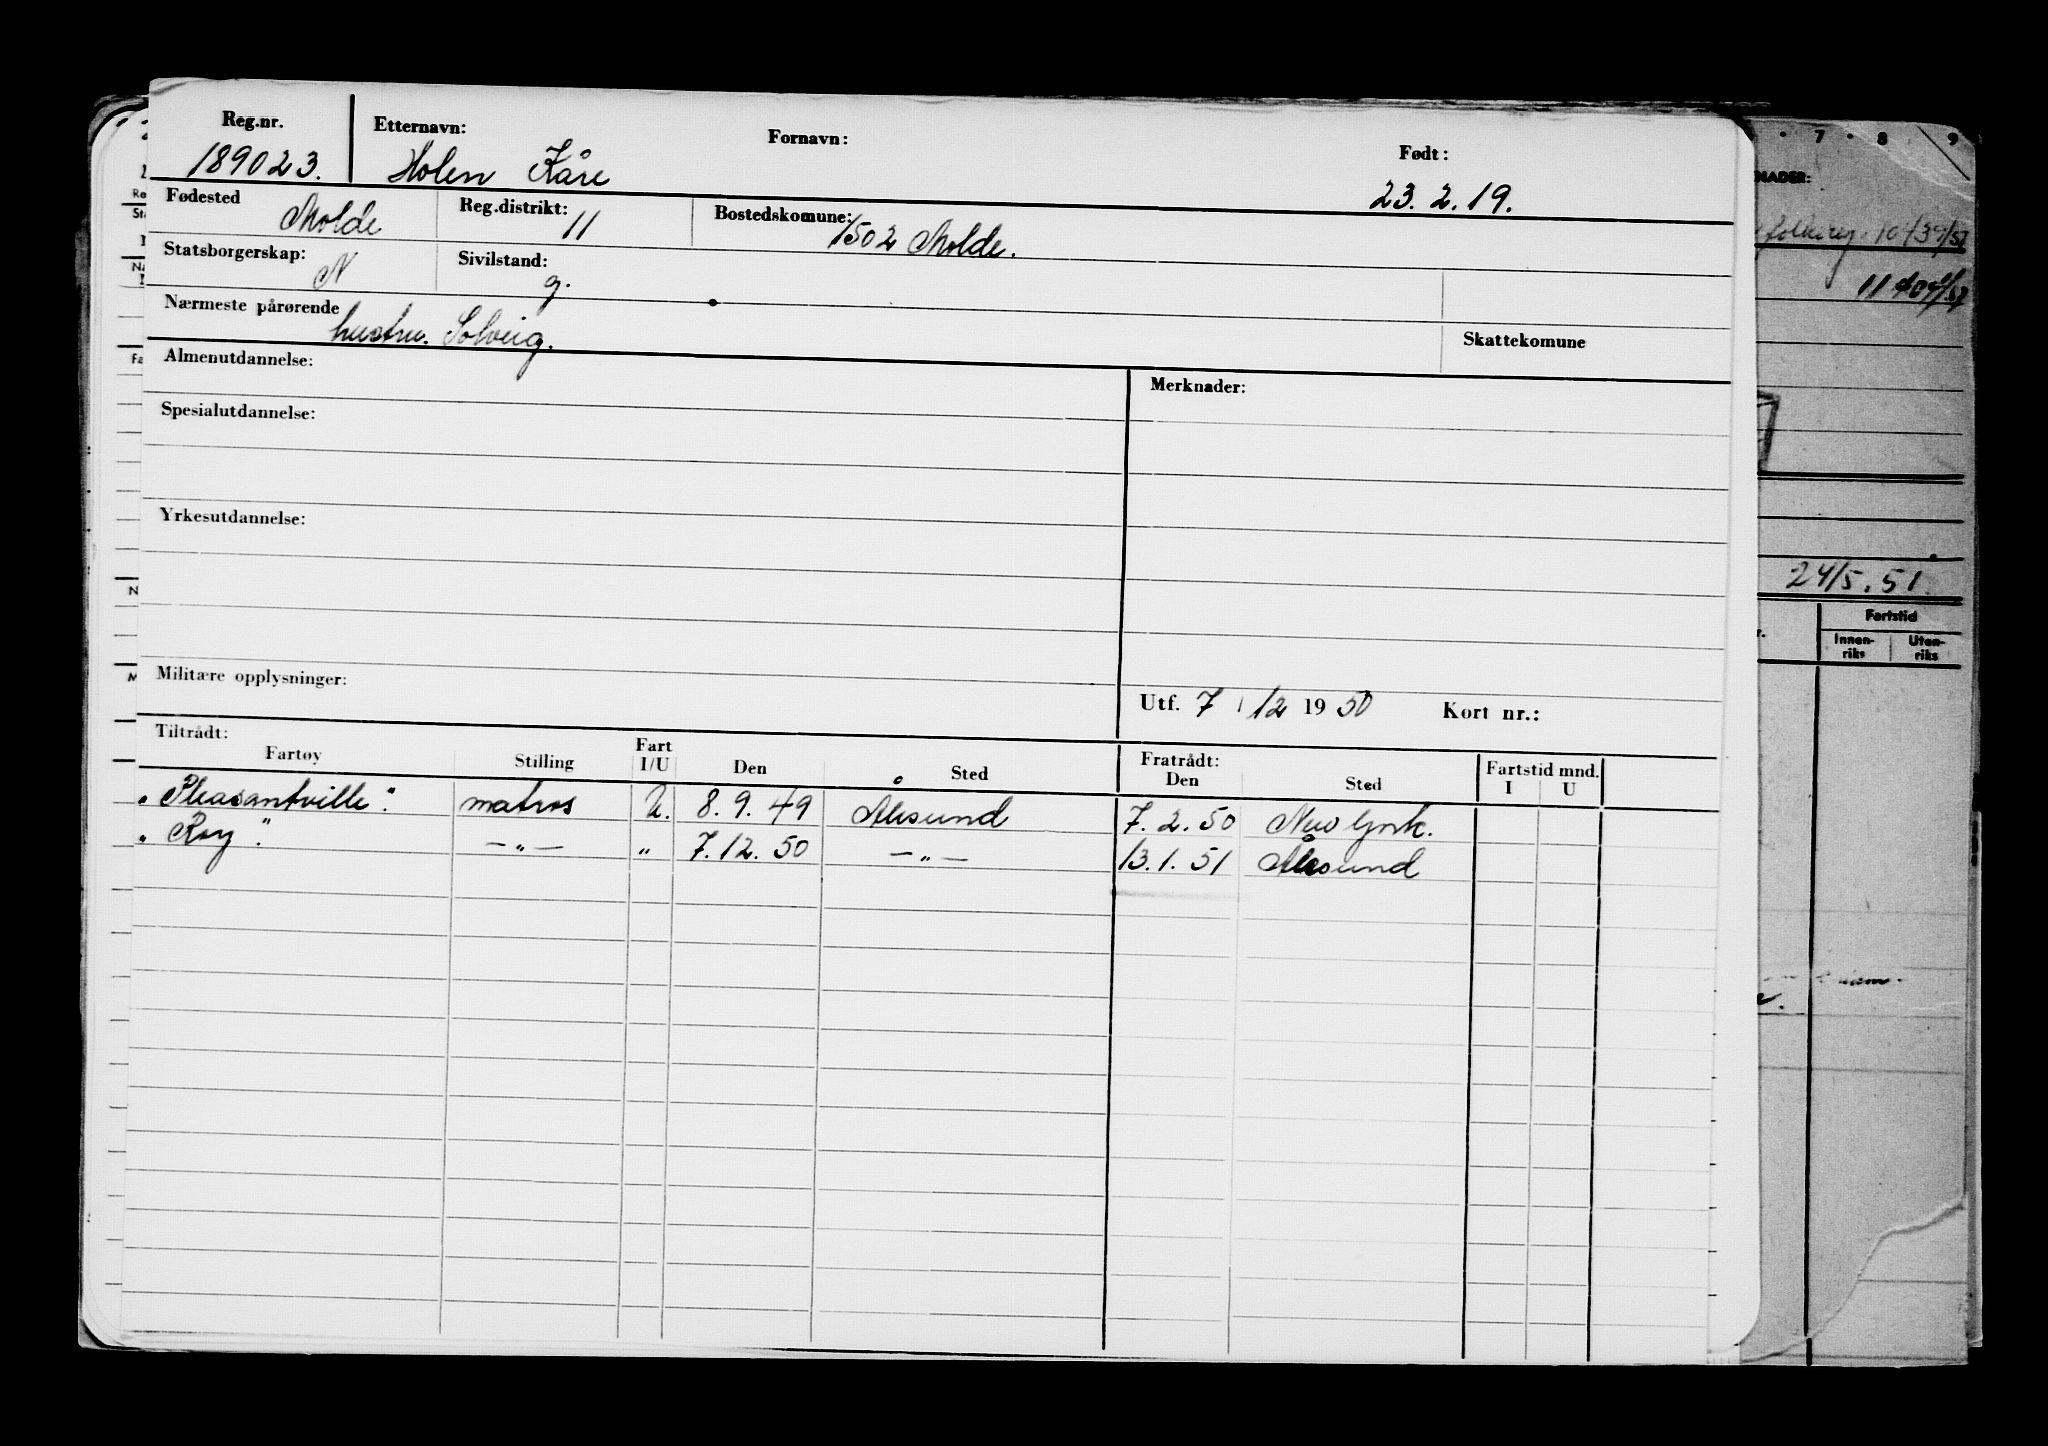 Reg.nr. Etternavn: Fornavn: Født:
189023. Holen Kåre 23. 2. 19.
Fødested Molde Reg.distrikt: 11 Bostedskomune: 1502 Molde.
Statsborgerskap: N Sivilstand: g.
Nærmeste pårørende hustru. Solveig. Skattekomune
Almenutdannelse: Merknader:
Spesialutdannelse:
Yrkesutdannelse:
Militære opplysninger:
Utf. 7 / 12 19 50 Kort nr.:
Tiltrådt: Fratrådt: Fartstid mnd.
Fartøy Stilling Fart I/U Den Sted Den Sted I U
"Pleasantville". matros U. 8. 9. 49 Ålesund 7. 2. 50 New York.
"Roy". —„— „ 7. 12. 50 —„— 13. 1. 51 Ålesund
7 8 9
NADER:
24/5. 51.
Fartstid
Innen-riks Uten-riks